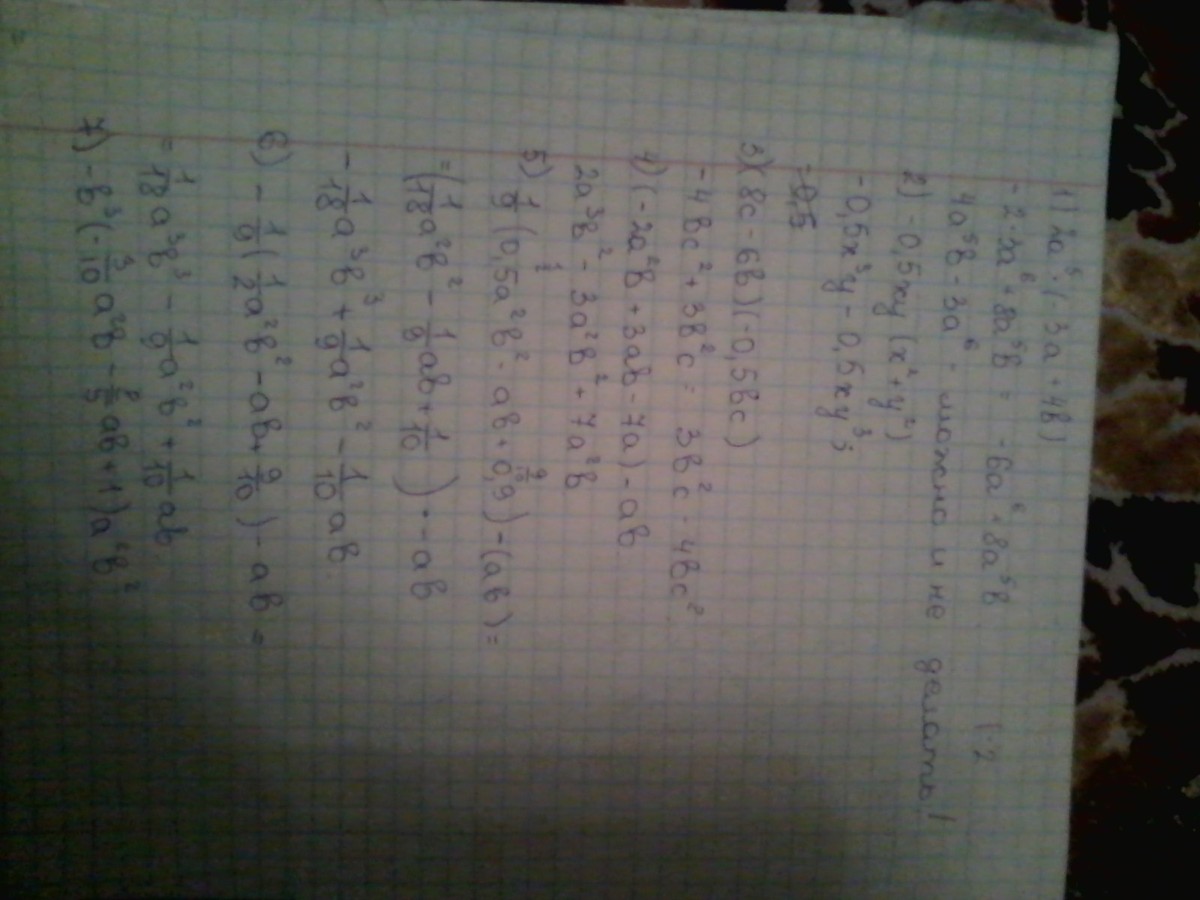 1) 2a⁵ · (-3a + 4b)
-2·3a⁶ + 8a⁵b = -6a⁶ + 8a⁵b (·2
4a⁵b - 3a⁶ - можно и не делать!
2) -0,5xy (x² + y²)
-0,5x³y - 0,5xy³;
-0,5
3) (8c - 6b)(-0,5bc)
-4bc² + 3b²c = 3b²c - 4bc²
4) (-2a²b + 3ab - 7a) - ab
2a³b² - 3a²b² + 7a²b
5) 1/9 (0,5a²b² - ab + 0,9) - (ab) =
= (1/18 a²b² - 1/9 ab + 1/10) · - ab
- 1/18 a³b³ + 1/9 a²b² - 1/10 ab
6) - 1/9 (1/2 a²b² - ab + 9/10) - ab =
= 1/18 a³b³ - 1/9 a²b² + 1/10 ab
7) -b³ (- 3/10 a²b - 8/5 ab + 1) a⁴b²